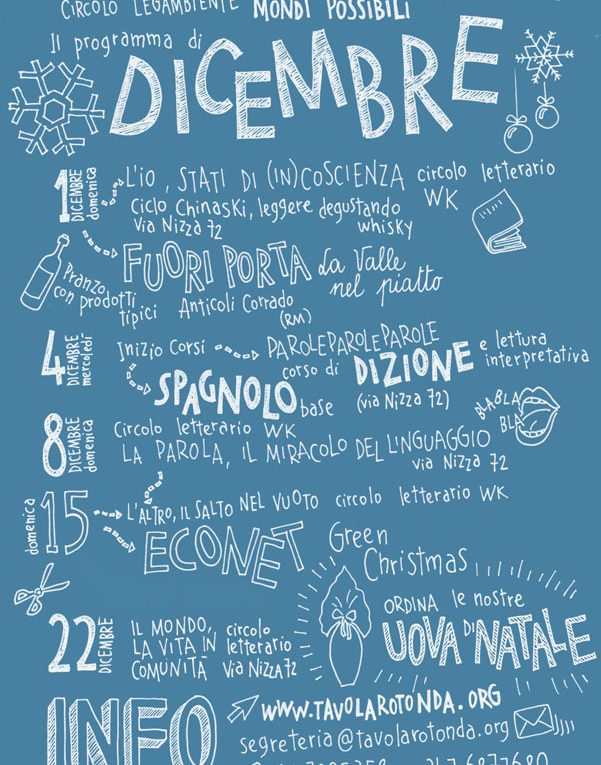 CIRCOLO LEGAMBIENTE MONDI POSSIBILI
Il programma di
DICEMBRE
1 DICEMBRE domenica
L'IO, STATI DI (IN)COSCIENZA circolo letterario WK
Ciclo Chinaski, leggere degustando whisky
via Nizza 72
FUORI PORTA La Valle nel piatto
Pranzo, con prodotti tipici Anticoli Corrado (RM)
4 DICEMBRE mercoledì
Inizio Corsi PAROLEPAROLEPAROLE
corso di DIZIONE e lettura interpretativa
SPAGNOLO base (via Nizza 72)
BLABLA BLA
8 DICEMBRE domenica
Circolo letterario WK
LA PAROLA, IL MIRACOLO DEL LINGUAGGIO
via Nizza 72
domenica 15
L'ALTRO, IL SALTO NEL VUOTO circolo letterario WK
ECONET Green Christmas
22 DICEMBRE
IL MONDO, LA VITA IN COMUNITÀ
circolo letterario via Nizza 72
ORDINA le nostre
UOVA DI NATALE
INFO
www.TAVOLAROTONDA.ORG
segreteria@tavolarotonda.org